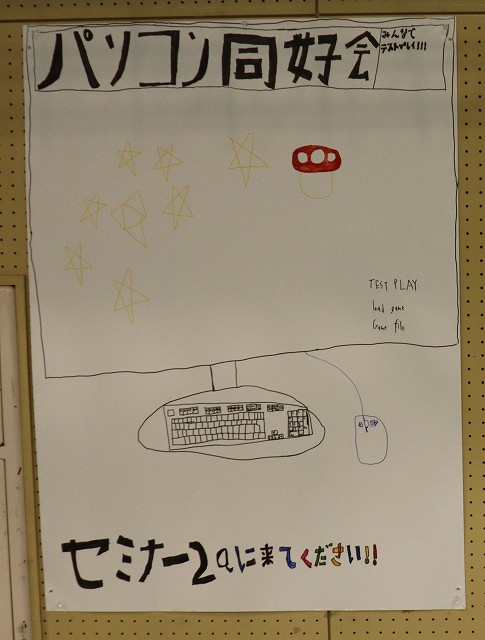 パソコン同好会
みんなで
テストプレイ!!!
TEST PLAY
load game
Game file
セミナー2aに来てください!!